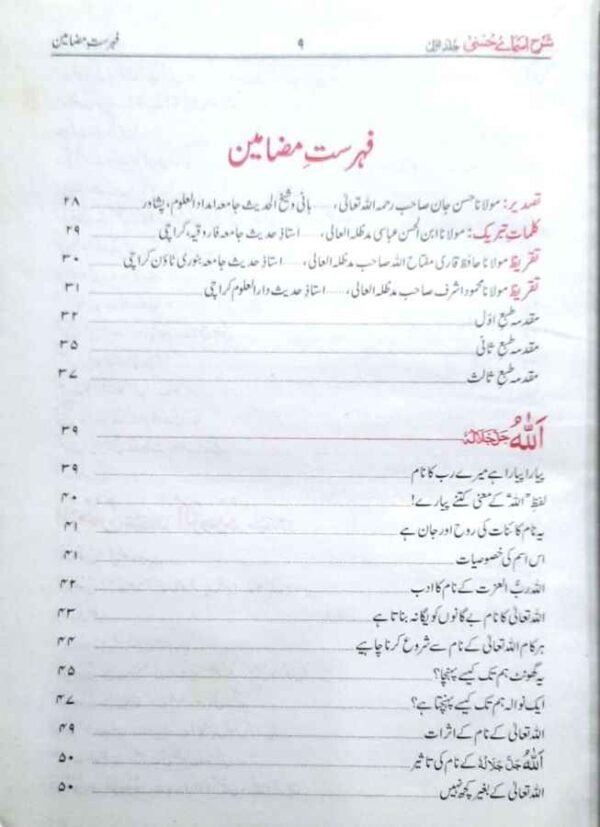 شرح اسمائے حسنیٰ جلد اوّل ۹ فہرستِ مضامین
فہرستِ مضامین
تصدیر: مولانا حسن جان صاحب رحمہ اللہ تعالیٰ، ..... بانی و شیخ الحدیث جامعہ امداد العلوم، پشاور ۲۸
کلماتِ تبریک: مولانا ابن الحسن عباسی مدظلہ العالی، ..... استاذِ حدیث جامعہ فاروقیہ، کراچی ۲۹
تقریظ مولانا حافظ قاری مفتاح اللہ صاحب مدظلہ العالی، ..... استاذِ حدیث جامعہ بنوری ٹاؤن کراچی ۳۰
تقریظ مولانا محمود اشرف صاحب مدظلہ العالی، ..... استاذِ حدیث دار العلوم کراچی ۳۱
مقدمہ طبع اوّل ۳۲
مقدمہ طبع ثانی ۳۵
مقدمہ طبع ثالث ۳۷
اَللّٰہُ جَلَّ جَلَالُہٗ ۳۹
پیارا پیارا ہے میرے رب کا نام ۳۹
لفظِ ”اللہ“ کے معنی کتنے پیارے! ۴۰
یہ نام کائنات کی روح اور جان ہے ۴۱
اس اسم کی خصوصیات ۴۱
اللہ ربُّ العزت کے نام کا ادب ۴۲
اللہ تعالیٰ کا نام بے گانوں کو یگانہ بناتا ہے ۴۳
ہر کام اللہ تعالیٰ کے نام سے شروع کرنا چاہیے ۴۴
یہ گھونٹ ہم تک کیسے پہنچا؟ ۴۵
ایک نوالہ ہم تک کیسے پہنچتا ہے؟ ۴۷
اللہ تعالیٰ کے نام کے اثرات ۴۹
اَللّٰہُ جَلَّ جَلَالُہٗ کے نام کی تاثیر ۵۰
اللہ تعالیٰ کے بغیر کچھ نہیں ۵۰